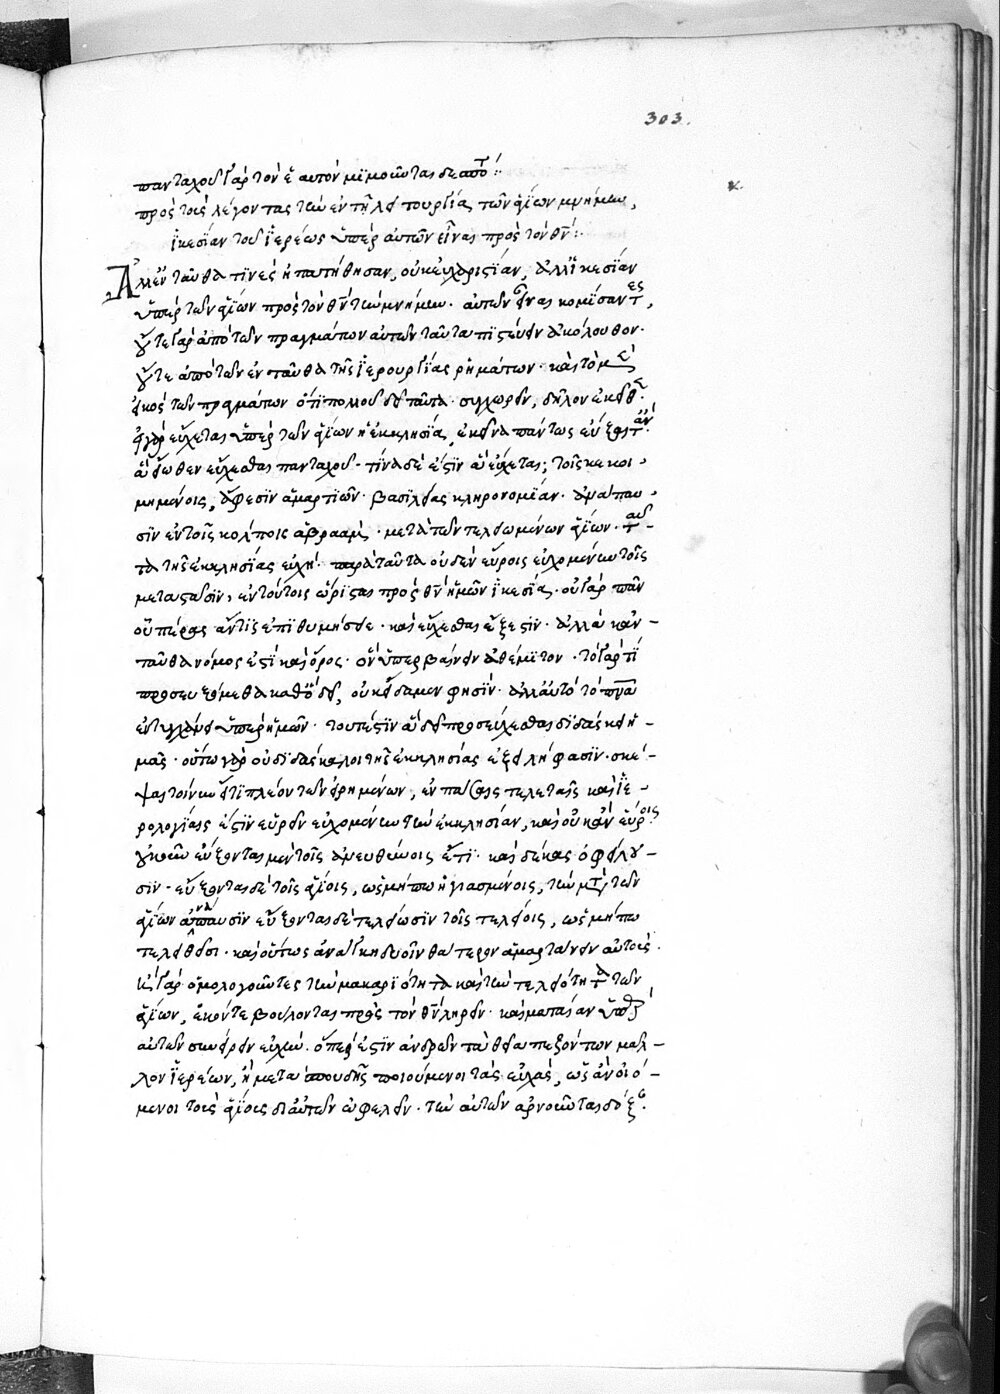 303.
πανταχοῦ γὰρ τὸν ἑαυτὸν μιμοῦνται δεσπότ:
πρὸς τοὺς λέγοντας τὴν ἐν τῇ λειτουργία τῶν ἁγίων μνήμην,
ἱκεσίαν τοῦ ἱερέως ὑπὲρ αὐτῶν εἶναι πρὸς τὸν θν:
Ἀλλ ἐνταῦθα τινὲς ἠπατήθησαν, οὐκ εὐχαριστίαν, ἀλλ ἱκεσίαν
ὑπὲρ τῶν ἁγίων πρὸς τὸν θν τὴν μνήμην αὐτῶν εἶναι νομίσαντες,
οὔτε γὰρ ἀπὸ τῶν πραγμάτων αὐτῶν ταῦτα πιστεύειν ἀκόλουθον·
οὔτε ἀπὸ τῶν ἐνταῦθα τῆς ἱερουργίας ῥημάτων· καὶ τὸ μὲν
εἰκὸς τῶν πραγμάτων ὅτι πολλοῦ δεῖ ταῦτα συγχωρεῖν, δῆλον ἐκεῖθεν·
εἰ γὰρ εὔχεται ὑπὲρ τῶν ἁγίων ἡ ἐκκλησία, ἐκεῖνα πάντως εὔξεται ἂν·
ἃ εἴωθεν εὔχεσθαι πανταχοῦ· τίνα δὲ ἐστὶν ἃ εὔχεται; τοῖς κεκοι-
μημένοις, ἄφεσιν ἁμαρτιῶν· βασιλείας κληρονομίαν· ἀνάπαυ-
σιν ἐν τοῖς κόλποις ἀβραὰμ· μετὰ τῶν τελειωμένων ἁγίων· ταῦ-
τα τῆς ἐκκλησίας εὐχή· παρὰ ταῦτα οὐδὲν εὕροις εὐχομένην τοῖς
μεταστᾶσιν, ἐν τούτοις ὥρισται πρὸς θν ἡμῶν ἱκεσία· οὐ γὰρ πᾶν
οὗπέρ ἄν τις ἐπιθυμήσειε· καὶ εὔχεσθαι ἔξεστιν· ἀλλὰ κἀν-
ταῦθα νόμος ἐστὶ καὶ ὅρος· ὃν ὑπερβαίνειν ἀθέμιτον· τὸ γὰρ τί
προσευξόμεθα καθὸ δεῖ, οὐκ οἴδαμεν φησὶν· ἀλλ αὐτὸ τὸ πνα
ἐντυγχάνει ὑπὲρ ἡμῶν· τουτέστιν ἃ δεῖ προσεύχεσθαι διδάσκει ἡ-
μᾶς· οὕτω γὰρ οἱ διδάσκαλοι τῆς ἐκκλησίας ἐξειλήφασιν· σκέ-
ψαι τοίνυν εἴ τι πλέον τῶν εἰρημένων, ἐν πάσαις τελεταῖς καὶ ἱε-
ρολογίαις ἐστὶν εὑρεῖν εὐχομένην τὴν ἐκκλησίαν, καὶ οὐκ ἂν εὕροις·
οὐκοῦν εὔξονται μὲν τοῖς ἀνευθύνοις ἔτι· καὶ δίκας ὀφείλου-
σιν· εὔξονται δὲ τοῖς ἁγίοις, ὡς μήπω ἡγιασμένοις, τὴν μετὰ τῶν
ἁγίων ἀνάπαυσιν εὔξονται δὲ τελείωσιν τοῖς τελείοις, ὡς μήπω
τελειωθεῖσι· καὶ οὕτως ἀνάγκη δυοῖν θάτερον ἁμαρτάνειν αὐτοὺς·
ἢ γὰρ ὁμολογοῦντες τὴν μακαριότητα καὶ τὴν τελειότητα τῶν
ἁγίων, ἑκόντες βούλονται πρὸς τὸν θν ληρεῖν· καὶ ματαίαν ὑπὲρ
αὐτῶν συνείρειν εὐχὴν. ὅπερ ἐστὶν ἀνδρῶν τὰ θεῖα παιζόντων μᾶλ-
λον ἱερέων, ἢ μετὰ σπουδῆς ποιούμενοι τὰς εὐχὰς, ὡς ἂν οἰό-
μενοι τοὺς ἁγίους δι αὐτῶν ὠφελεῖν· τὴν αὐτῶν ἀρνοῦνται δόξαν·